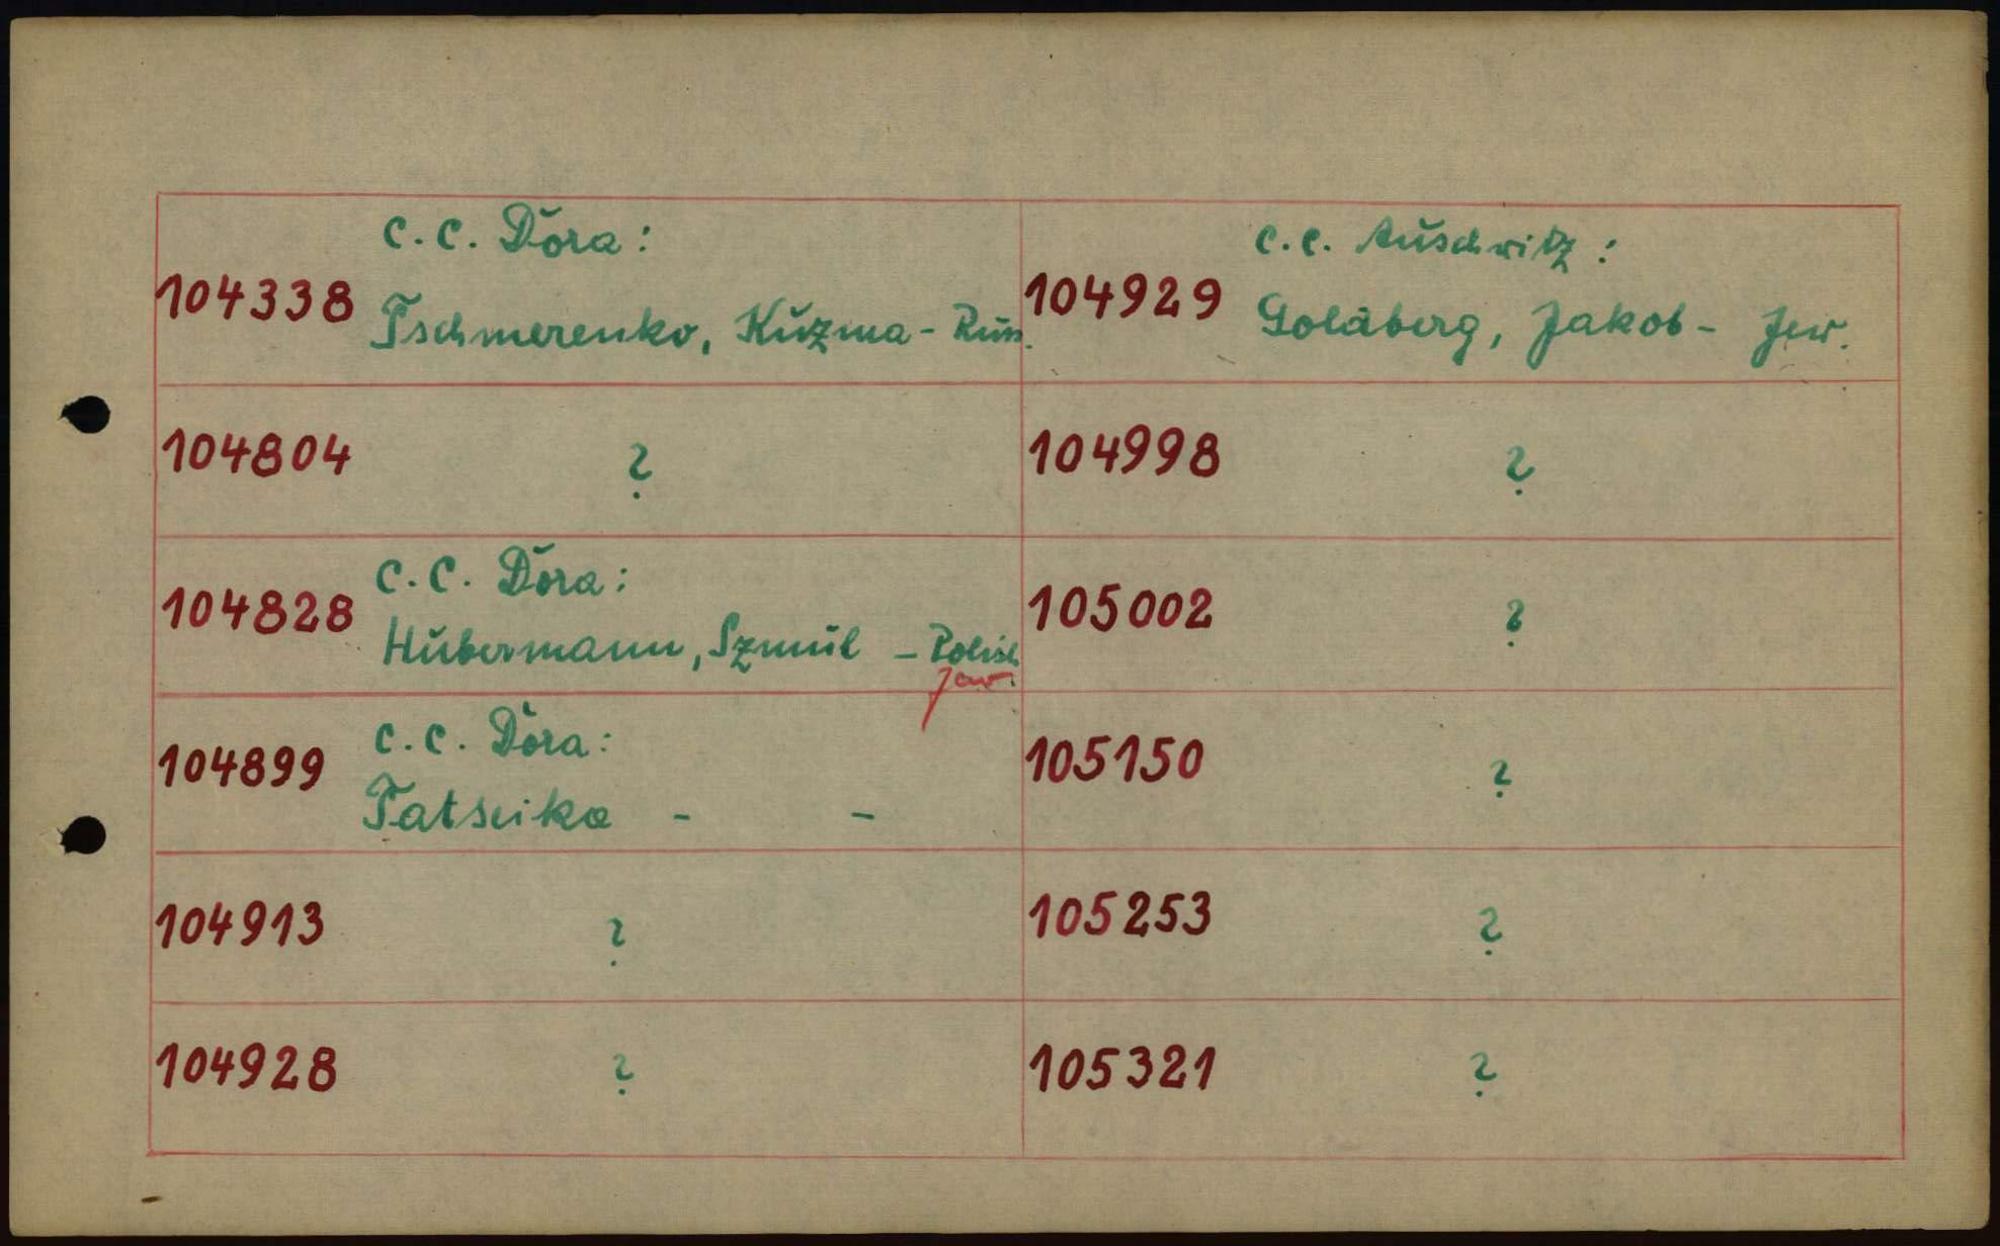 c.c. Dora:
104338 Tschmerenko, Kuzma - Russ.
104804 ?
c.c. Dora:
104828 Hubermann, Szmul - Polish
Jew.
c.c. Dora:
104899 Tatseika - -
104913 ?
104928 ?
c.c. Auschwitz:
104929 Goldberg, Jakob - Jew.
104998 ?
105002 ?
105150 ?
105253 ?
105321 ?